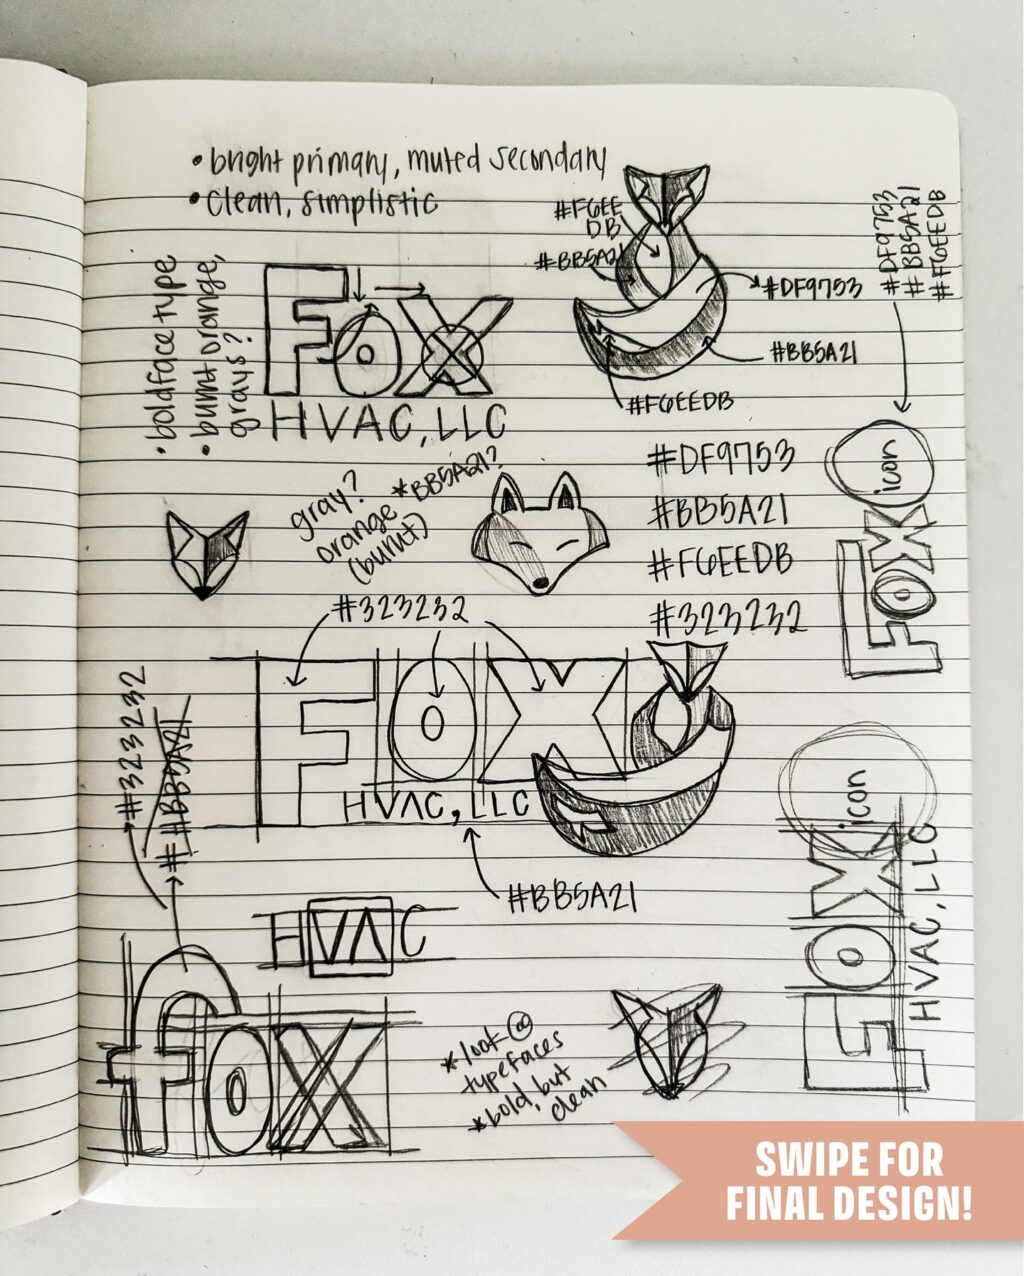 • bright primary, muted secondary
• clean, simplistic
• boldface type
• burnt orange,
grays?
Fox
HVAC, LLC
#F6EE
DB
#BB5A21
#DF9753
#BB5A21
#F6EEDB
#DF9753
#BB5A21
#F6EEDB
icon
Fox
gray?
orange *BB5A21?
(burnt)
#DF9753
#BB5A21
#F6EEDB
#323232
#323232
FOX
HVAC, LLC
#BB5A21
#323232
#BB5A21
HVAC
fox
* look @
typefaces
* bold, but
clean
icon
FOX
HVAC, LLC
SWIPE FOR
FINAL DESIGN!